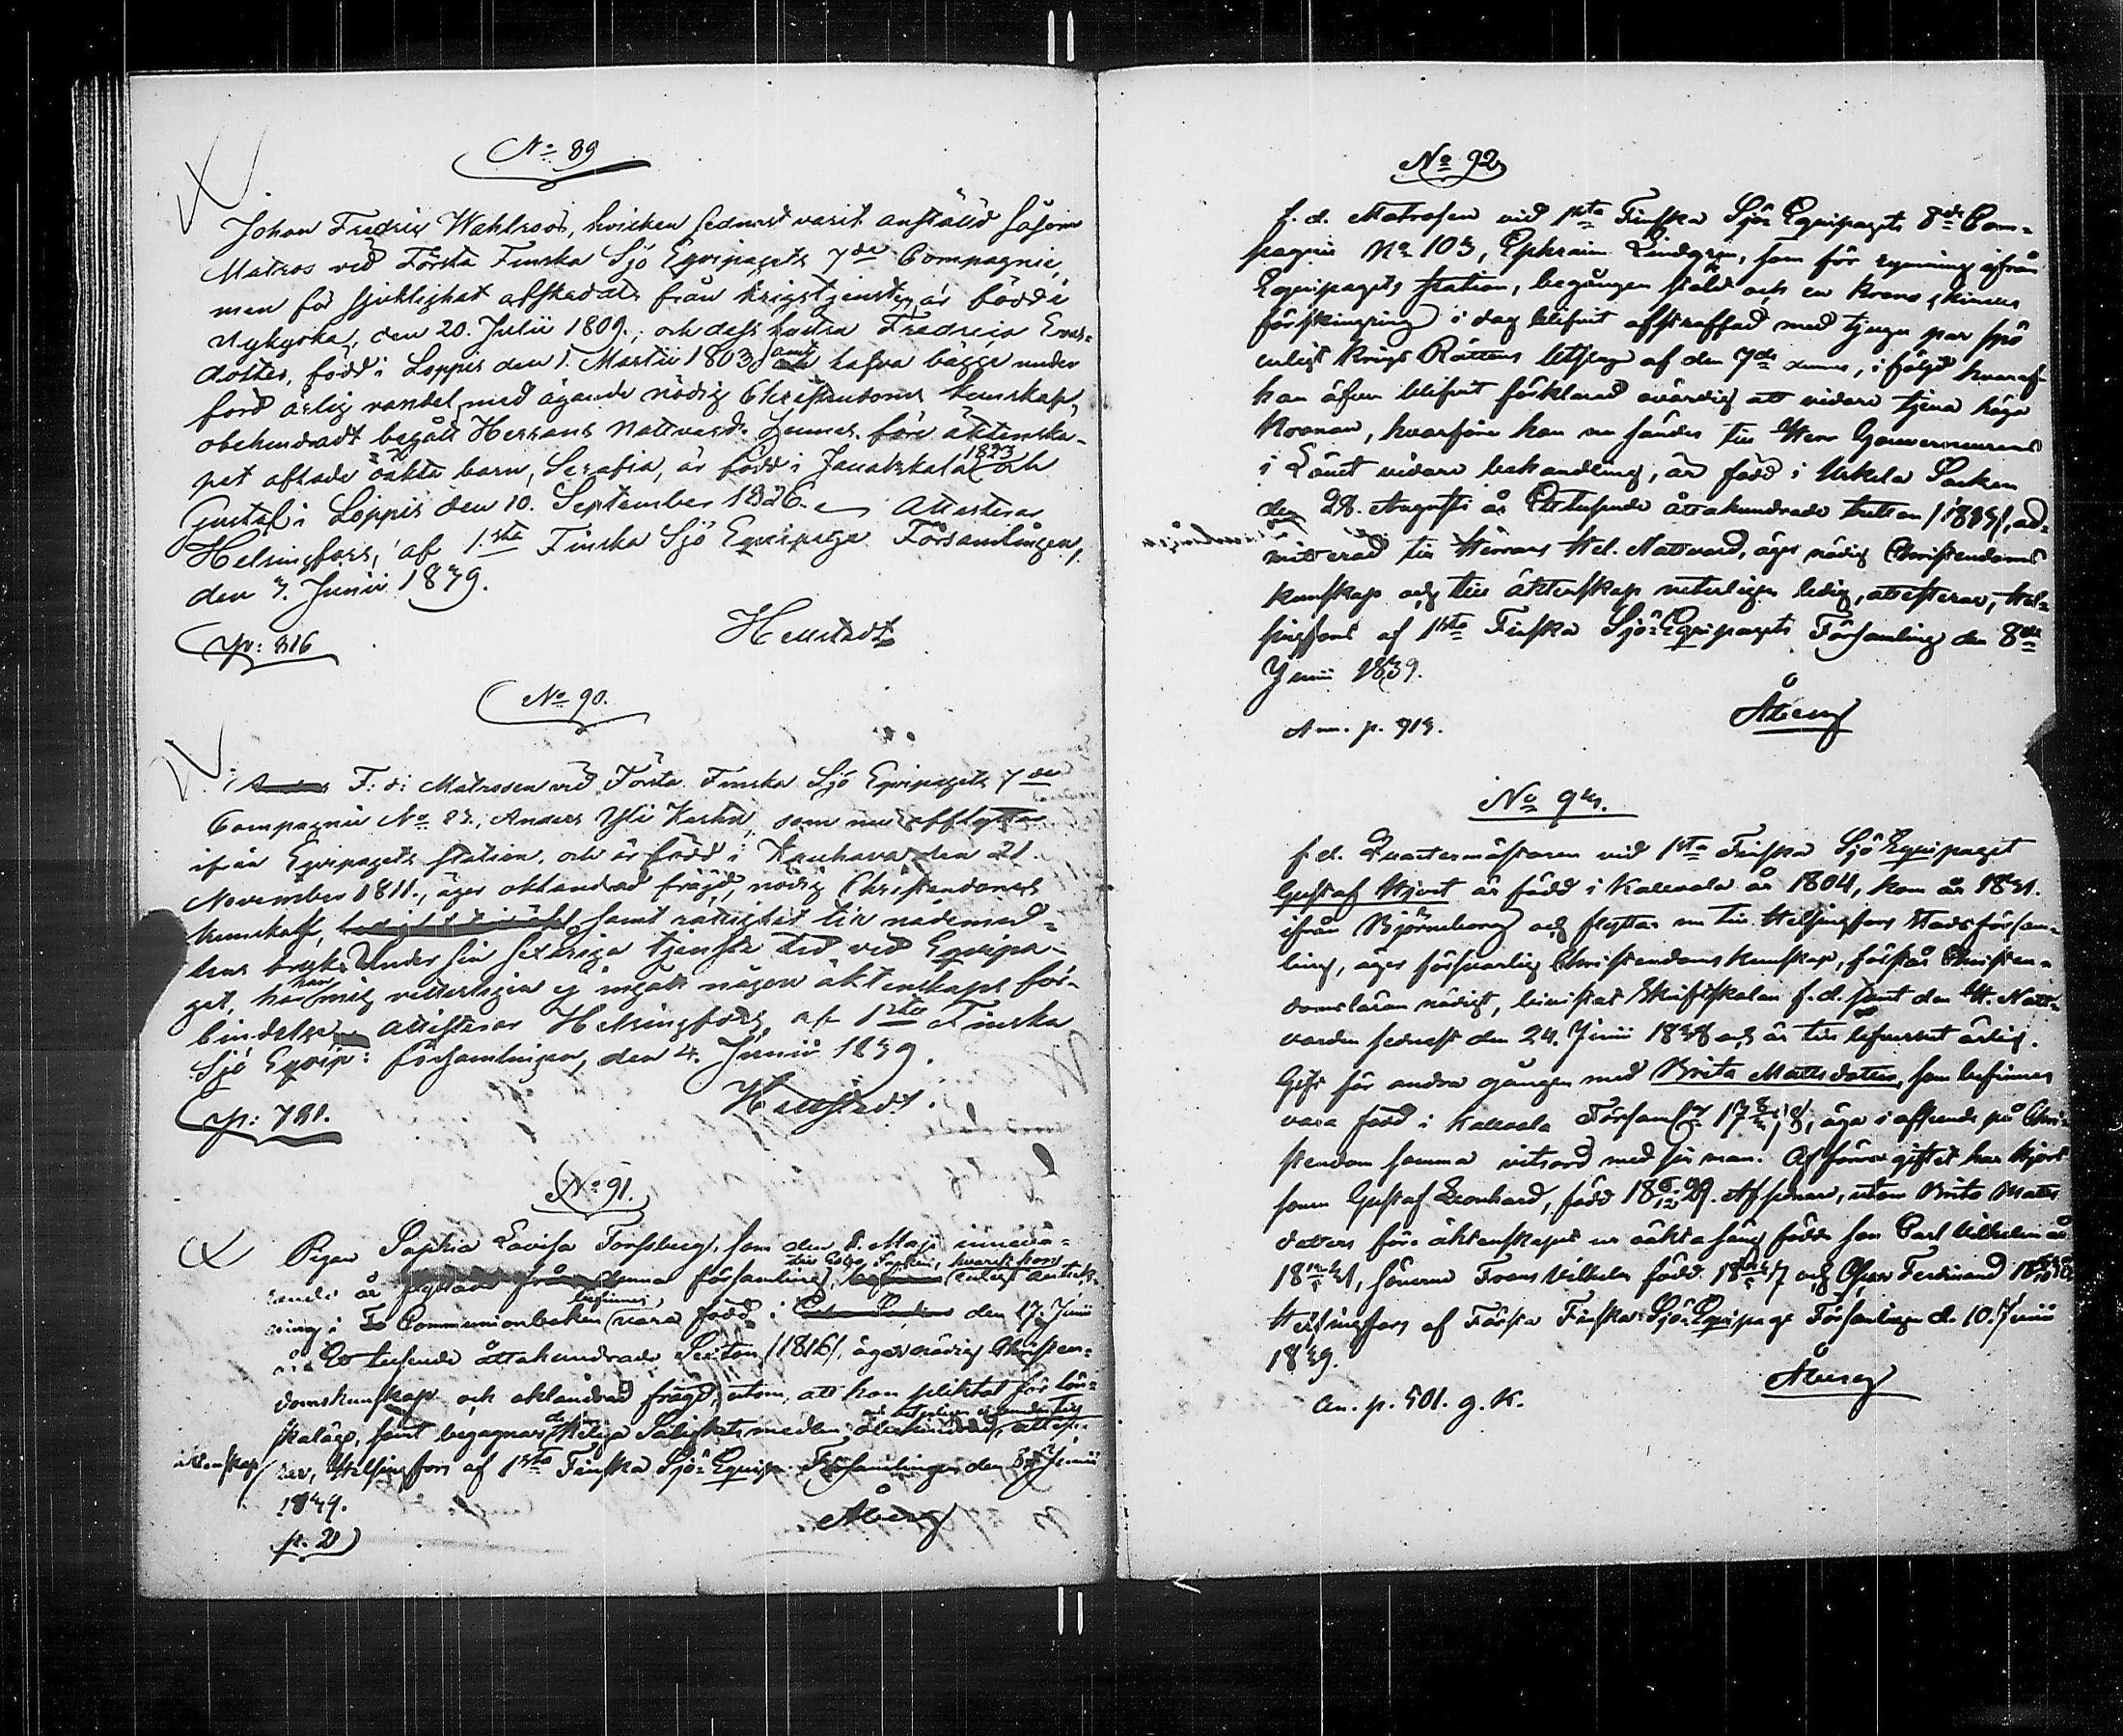 No 89
Johan Fredric Wahlroos, hvilken sednast varit anställd såsom
Matros vid Första Finska Sjö Eqvipagets 7de Compagnie,
men för sjuklighet afskedats från krigstjensten är född i
Nykyrka, den 20. Julii 1809., och dess hustru Fredrica
dotter, född i Loppis den 1. Martii 1803, samt hafva bägge under
ford ärlig vandel med ägande nödig Christendoms kunskap,
obehindradt begått Herrans Nattvard. före äktenska-
pet aflade oäkta barn, Serafia, är född i Janakkala 1823 och
Gustaf i Loppis den 10. September 1826. Attesterar
Helsingfors, af 1sta Finska Sjö Eqvipage Församlingen,
den 3. Junii 1839.
Hellstedt
p: 816
No 90.
F: d: Matrosen vid Första Finska Sjö Eqvipagets 7de
Compagnie No 83., Anders Yli Karhu, som nu afflyttar
ifrån Eqvipagets station, och är född i Kauhava den 21.
November 1811., äger oklandrad frägd, nödig Christendoms
kunskap, samt rättighet till nådemed-
lens bruk. Under sin tjenste tid vid Eqvipa-
get, har han mig vetterligen ej ingått någon äktenskaps för-
bindelse attesterar Helsingfors, af 1sta Finska
Sjö Eqvip: församlingen, den 4. Junii 1839.
Hellstedt.
p: 781.
No 91.
Pigan Sophia Lovisa Forssberg, som den 8. Maji inneva-
rande år denna församling, enligt anteck-
ning i Communionboken befinnes vara född i den 17. Junii
Ett tusende åttahundrade Sexton /1816/, äger nödig Christen-
domskunskap och oklandrad frägd, utom, att hon pliktat för lön-
skaläge, samt begagnar de Heliga Salighetsmedlen attest-
äktenskap
rar, Helsingfors af 1sta Finska Sjö-Equip. Församlingen den Junii
1839.
Åberg
p. 2
No 92
f. d. Matrosen vid 1sta Finska Sjö-Equipagets 8de Com-
pagnie No 103, Ephraim Lindgren, som för rymning ifrån
Equipagets station, begången stöld och en Krono
förskingring i dag blifvit afstraffad med tjugu par spö
enligt Krigs Rättens utslag af den 7de dennes, i följd hvaraf
han äfven blifvit förklarad ovärdig att vidare tjena höga
Kronan, hvarföre han nu sändes till Herr Gouverneurens
i Länet vidare behandling, är född i Uskela Socken
den 28. Augusti år Ettusende åttahundrade tretton /1813/, ad-
mitterad till Herrans Hel. Nattvard, äger nödig Christendoms
kunskap och till äktenskap veterligen ledig, attesterar, Hel-
singfors af 1sta Finska Sjö-Equipagets Församling den 8de
Junii 1839.
Åberg
Ann. p. 913.
No 93.
f. d. Quartermästaren vid 1sta Finska Sjö Equipaget
Gustaf Hjort är född i Kalevala år 1804, kom år 1831.
ifrån Björneborg och flyttar nu till Helsingfors Stads försam-
ling, äger försvarlig Christendoms kunskap, förstår Christen-
domsläran nödigt, bivistat Skriftskolan f. d. samt den H. Natt-
varden sednast den 24. Junii 1838 och är till lefvernet ärlig.
Gift för andra gången med Brita Mattsdotter, som befinnes
vara född i Kalevala Församling, äga i afseende på Chri-
stendom samma vitsord med sin man. Af förra giftet har Hjort
sonen Gustaf Leonhard, född 1829. Af sednare, utom Brita Matts
dotters före äktenskapet ur oäkta säng födde son Carl Wilhelm år
1831, sönerne Frans Vilhelm född 1837 och Oscar Ferdinand
Helsingfors af Första Finska Sjö-Equipage Församlingen d. 10. Junii
1839.
Åberg
An. p. 501. g. K.